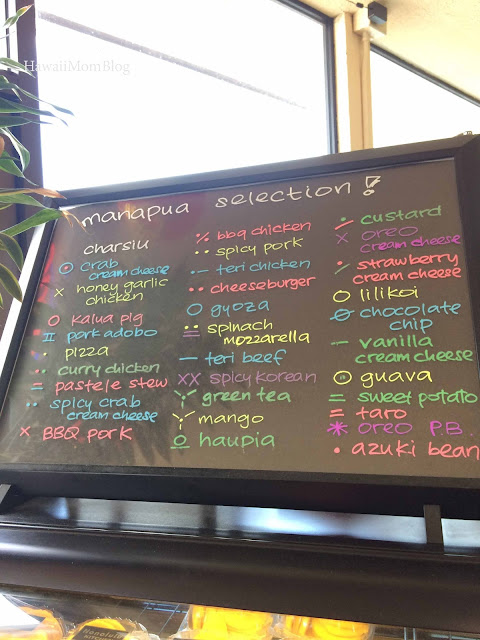 HawaiiMomBlog
manapua selection!
charsiu
crab
cream cheese
x honey garlic
chicken
kalua pig
pork adobo
pizza
curry chicken
= pastele stew
spicy crab
cream cheese
x BBQ pork
bbq chicken
spicy pork
teri chicken
cheeseburger
gyoza
spinach
mozzarella
teri beef
xx spicy korean
green tea
mango
haupia
custard
x oreo
cream cheese
strawberry
cream cheese
lilikoi
chocolate
chip
vanilla
cream cheese
guava
= sweet potato
= taro
* oreo P.B
azuki bean